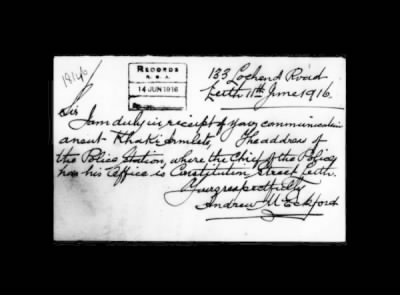 18146
RECORDS
R.G.A.
14 JUN 1916
133 Lochend Road
Leith 11th June 1916.
Sir
I am duly in receipt of your communication
anent Khaki Armlets, The address of
the Police Station, where the Chief of the Police
has his Office is Constitution Street Leith.
Yours respectfully
Andrew M Eckford